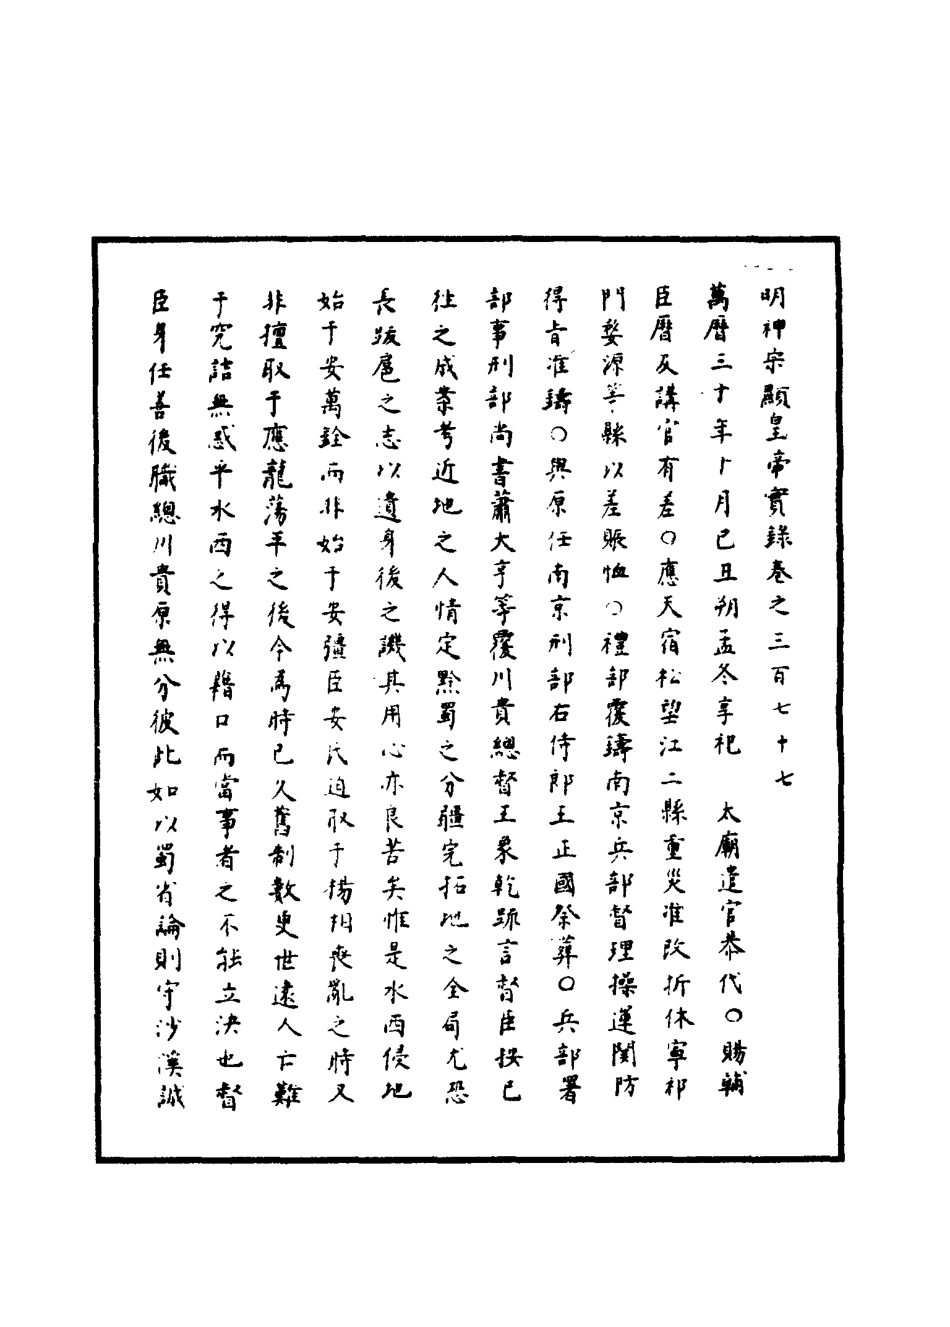 明神宗顯皇帝實錄卷之三百七十七
萬曆三十年十月己丑朔孟冬享祀　太廟遣官恭代○賜輔
臣曆及講官有差○應天宿松望江二縣重災准改折休寧祁
門婺源等縣以差賑恤○禮部覆鑄南京兵部督理操運關防
得旨准鑄○與原任南京刑部右侍郎王正國祭葬○兵部署
部事刑部尚書蕭大亨等覆川貴總督王象乾疏言督臣按已
往之成案考近地之人情定黔蜀之分疆完拓地之全局尤恐
長跋扈之志以遺身後之譏其用心亦良苦矣惟是水西侵地
始于安萬銓而非始于安疆臣安氏迫取于楊相喪亂之時又
非擅取于應龍蕩平之後今為時已久舊制數更世遠人亡難
于究詰無惑乎水西之得以藉口而當事者之不能立決也督
臣身任善後職總川貴原無分彼此如以蜀省論則守沙溪誠